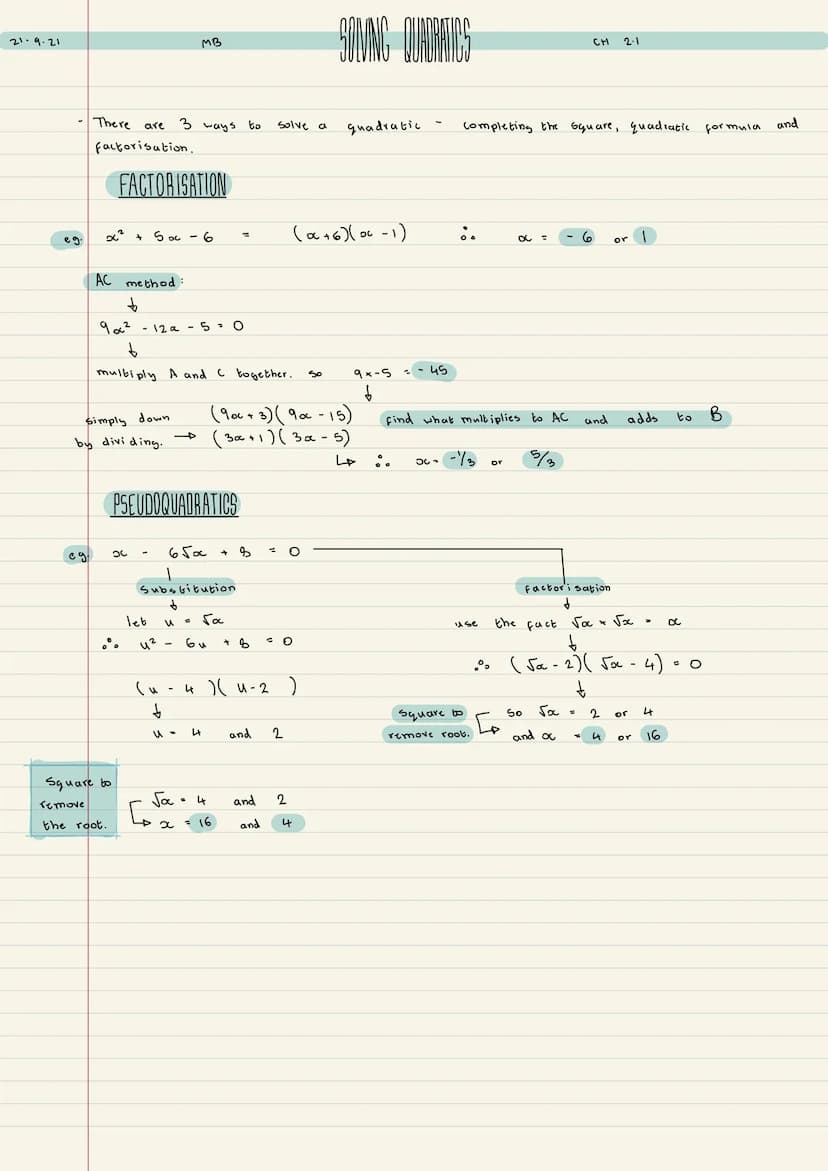 21.9.21 MB SOLVING QUADRATICS CH 2.1
- There are 3 ways to solve a quadratic - completing the square, quadratic formula and
factorisation.
FACTORISATION
eg. x² + 5x - 6 = (x+6)(x-1) ∴ x = -6 or 1
AC method:
↓
9x² - 12x - 5 = 0
↓
multiply A and C together. so 9x-5 = -45
↓
simply down (9x + 3)(9x - 15) find what multiplies to AC and adds to B
by dividing. → (3x+1)(3x-5)
↳ ∴ x = -1/3 or 5/3
PSEUDOQUADRATICS
eg. x - 6√x + 8 = 0
Substitution
↓
let u = √x
∴ u² - 6u + 8 = 0
(u - 4)(u-2)
↓
u = 4 and 2
Square to
remove
the root.
√x = 4 and 2
x = 16 and 4
Factorisation
↓
use the fact √x × √x = x
↓
∴ (√x - 2)(√x - 4) = 0
↓
Square to
remove root.
so √x = 2 or 4
and x = 4 or 16